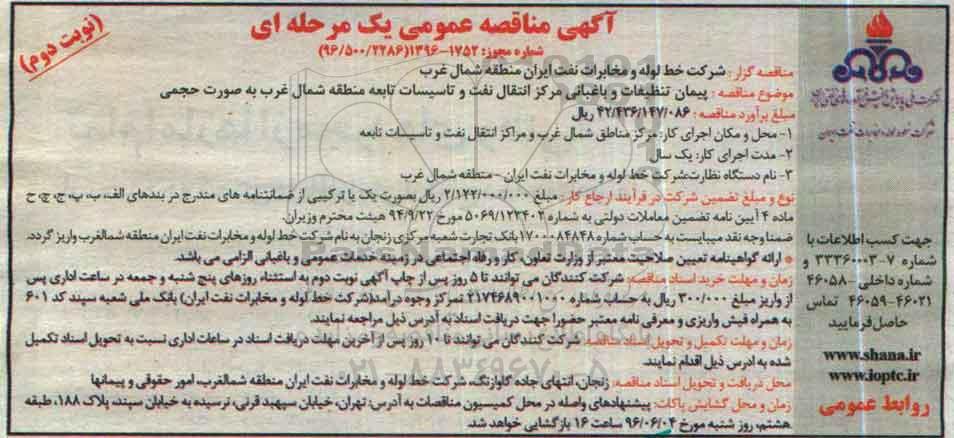 آگهی مناقصه عمومی یک مرحله ای
(نوبت دوم)
شماره مجوز: ۱۷۵۲-۱۳۹۶(۹۶/۵۰۰/۲۲۸۶)
مناقصه گزار: شرکت خط لوله و مخابرات نفت ایران منطقه شمال غرب
موضوع مناقصه: پیمان تنظیفات و باغبانی مرکز انتقال نفت و تاسیسات تابعه منطقه شمال غرب به صورت حجمی
مبلغ برآورد مناقصه: ۴۲/۴۳۶/۱۴۷/۰۸۶ ریال
۱- محل و مکان اجرای کار: مرکز مناطق شمال غرب و مراکز انتقال نفت و تاسیسات تابعه
۲- مدت اجرای کار: یک سال
۳- نام دستگاه نظارت: شرکت خط لوله و مخابرات نفت ایران - منطقه شمال غرب
نوع و مبلغ تضمین شرکت در فرآیند ارجاع کار: مبلغ ۲/۱۲۲/۰۰۰/۰۰۰ ریال بصورت یک یا ترکیبی از ضمانتنامه های مندرج در بندهای الف، ب، پ، ج، چ، ح
ماده ۴ آیین نامه تضمین معاملات دولتی به شماره ۱۲۳۴۰۲/ت۵۰۶۹ مورخ ۹۴/۹/۲۲ هیئت محترم وزیران.
ضمنا وجه نقد میبایست به حساب شماره ۱۷۰۰۰۸۴۸۴۸ بانک تجارت شعبه مرکزی زنجان به نام شرکت خط لوله و مخابرات نفت ایران منطقه شمالغرب واریز گردد.
* ارائه گواهینامه تعیین صلاحیت معتبر از وزارت تعاون، کار و رفاه اجتماعی در زمینه خدمات عمومی و باغبانی الزامی می باشد.
زمان و مهلت خرید اسناد مناقصه: شرکت کنندگان می توانند تا ۵ روز پس از چاپ آگهی نوبت دوم به استثناء روزهای پنج شنبه و جمعه در ساعت اداری پس
از واریز مبلغ ۳۰۰/۰۰۰ ریال به حساب شماره ۲۱۷۴۶۸۹۰۰۱۰۰۰ تمرکز وجوه درآمد(شرکت خط لوله و مخابرات نفت ایران) بانک ملی شعبه سپند کد ۶۰۱
به همراه فیش واریزی و معرفی نامه معتبر حضورا جهت دریافت اسناد به آدرس ذیل مراجعه نمایند.
زمان و مهلت تکمیل و تحویل اسناد مناقصه: شرکت کنندگان می توانند تا ۱۰ روز پس از آخرین مهلت دریافت اسناد در ساعات اداری نسبت به تحویل اسناد تکمیل
شده به ادرس ذیل اقدام نمایند.
محل دریافت و تحویل اسناد مناقصه: زنجان، انتهای جاده گاوازنگ، شرکت خط لوله و مخابرات نفت ایران منطقه شمالغرب، امور حقوقی و پیمانها
زمان و محل گشایش پاکات: پیشنهادهای واصله در محل کمیسیون مناقصات به آدرس: تهران، خیابان سپهبد قرنی، نرسیده به خیابان سپند، پلاک ۱۸۸، طبقه
هشتم، روز شنبه مورخ ۹۶/۰۶/۰۴ ساعت ۱۶ بازگشایی خواهد شد.
جهت کسب اطلاعات با
شماره ۷-۳۳۳۶۰۰۰۳ و
شماره داخلی ۴۶۰۵۸-
۴۶۰۲۱-۴۶۰۵۹ تماس
حاصل فرمایید
www.shana.ir
www.ioptc.ir
روابط عمومی
۰۲۱-۸۸۳۴۹۶۷۰-۵